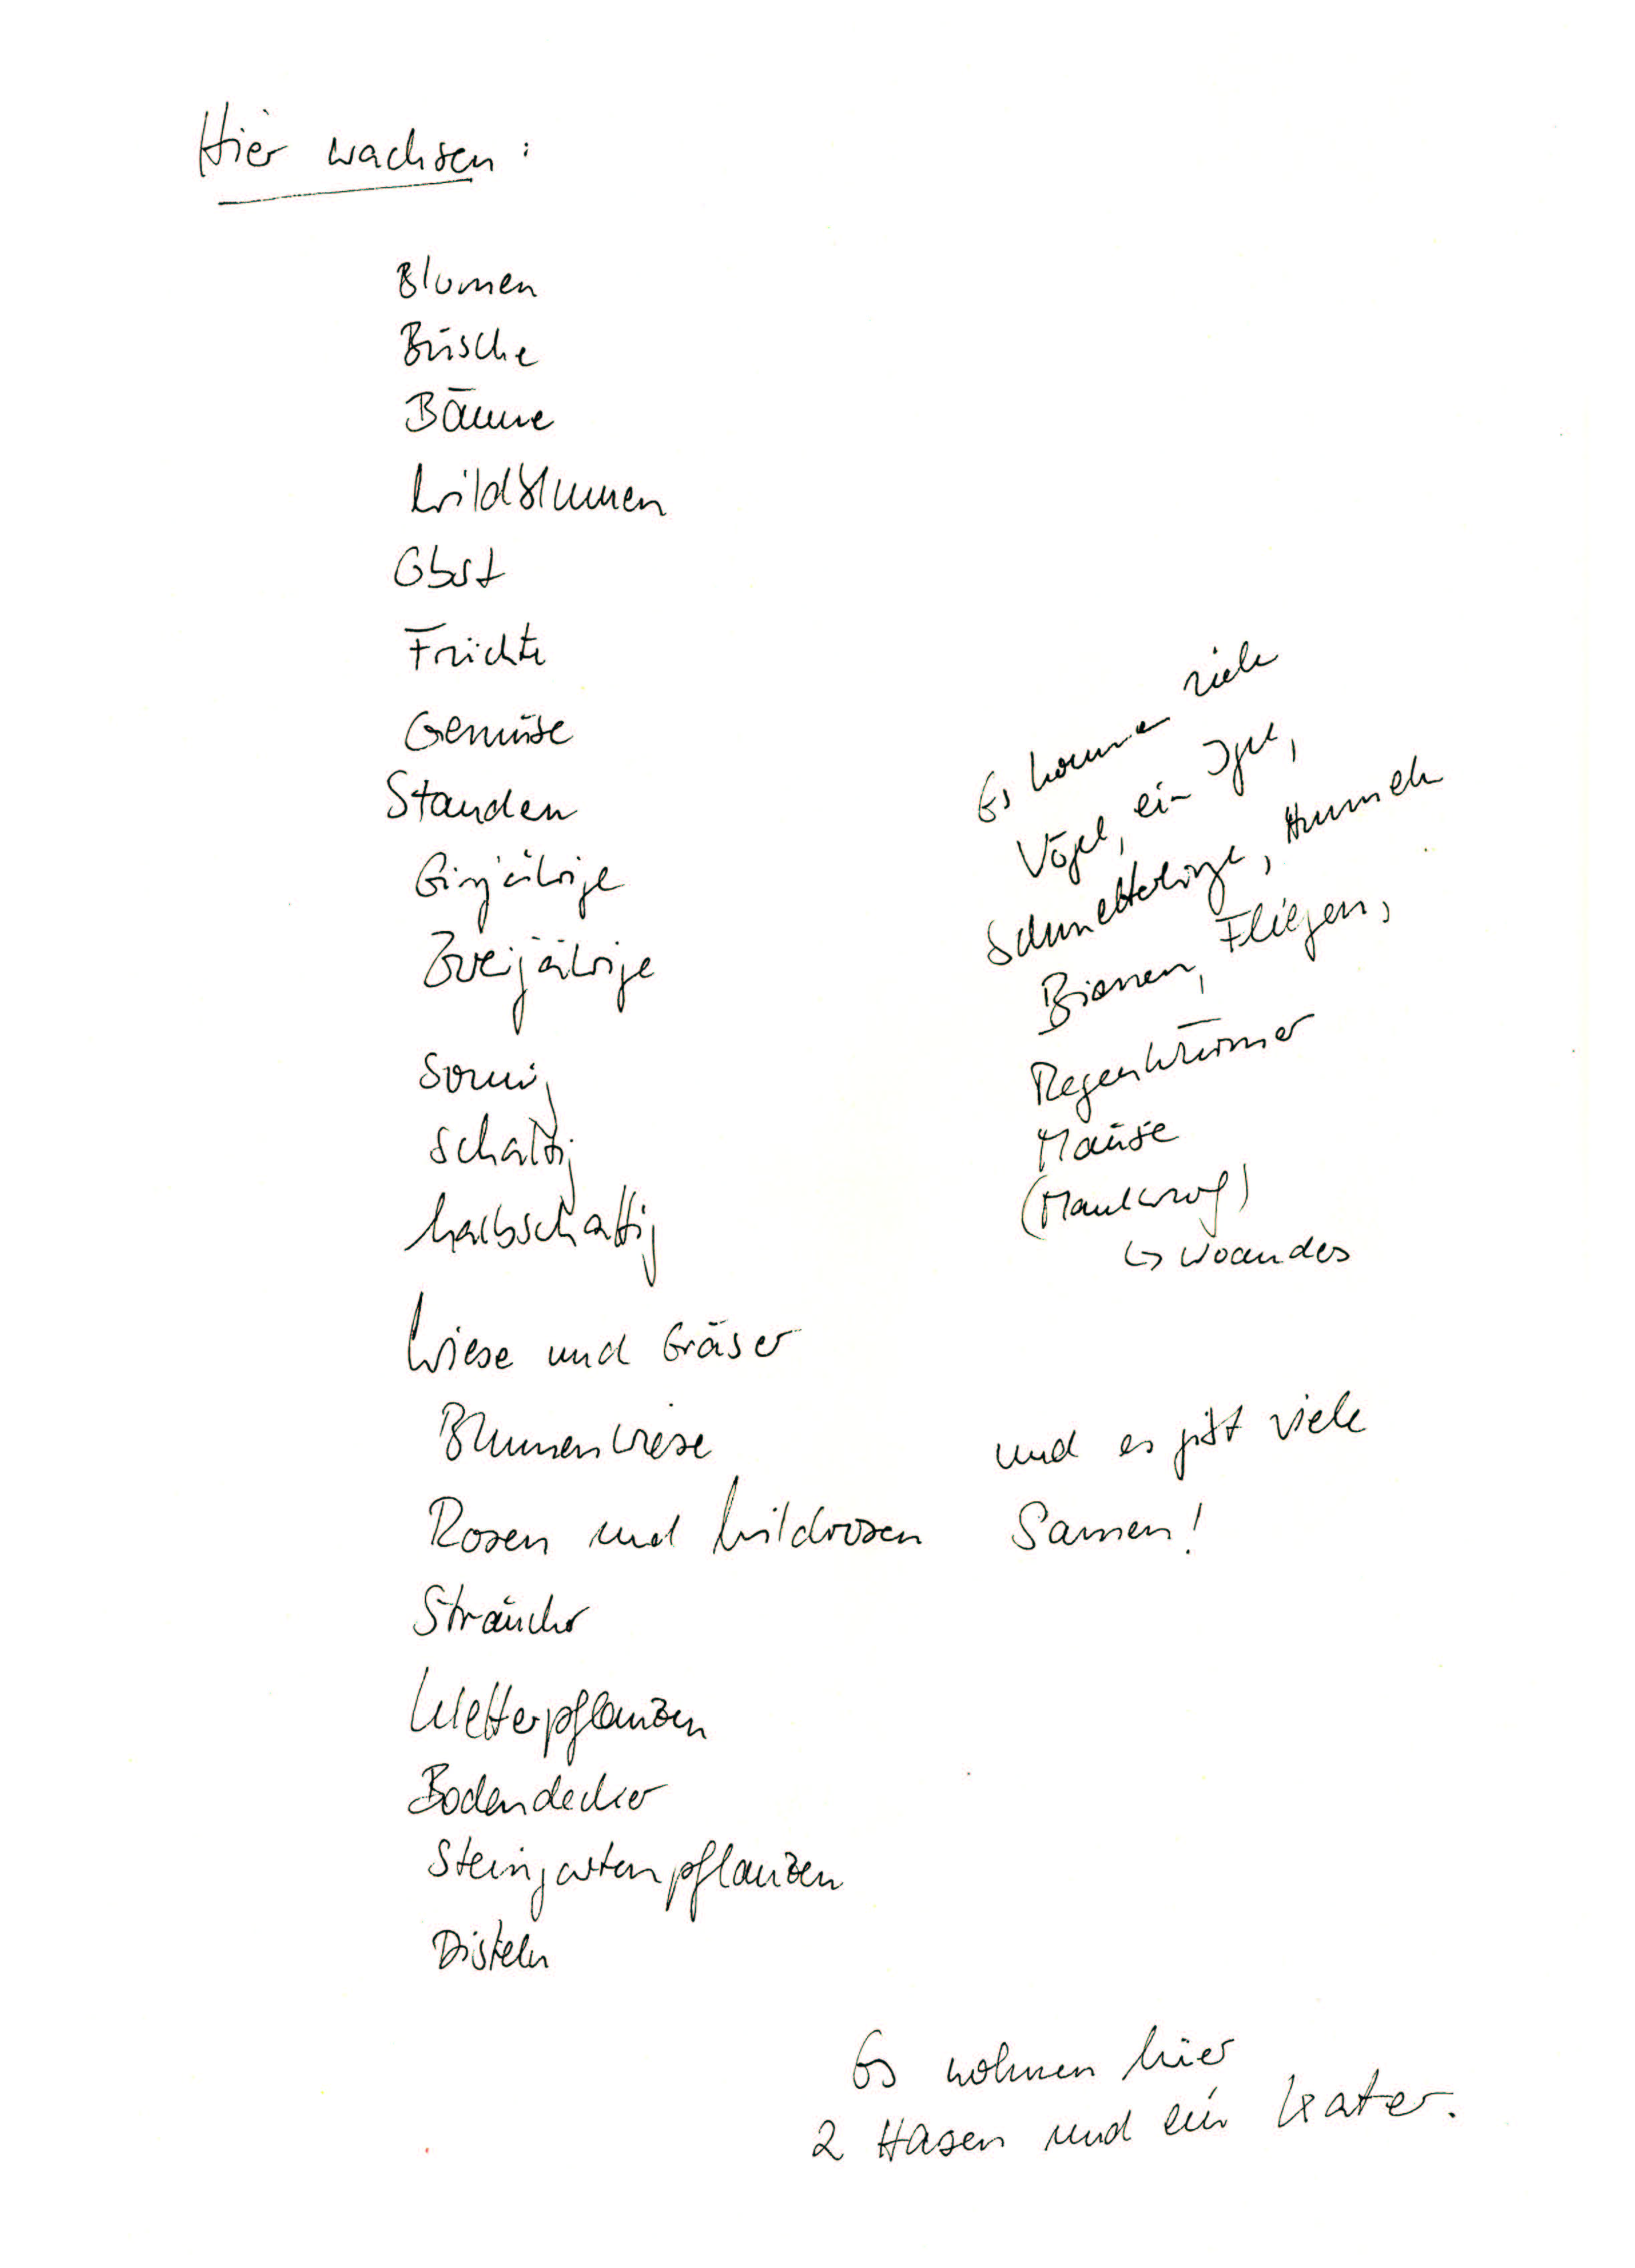 Hier wachsen:
Blumen
Büsche
Bäume
Wildblumen
Obst
Früchte
Gemüse
Stauden
Einjährige
Zweijährige
Sonnig
schattig
halbschattig
Wiese und Gräser
Blumenwiese
Rosen und Wildrosen
Sträucher
Kletterpflanzen
Bodendecker
Steingartenpflanzen
Disteln
Es kommen viele
Vögel, ein Igel,
Schmetterlinge, Hummeln
Bienen, Fliegen,
Regenwürmer
Mäuse
(Maulwurf)
↳ woanders
und es gibt viele
Samen!
Es wohnen hier
2 Hasen und ein Kater.